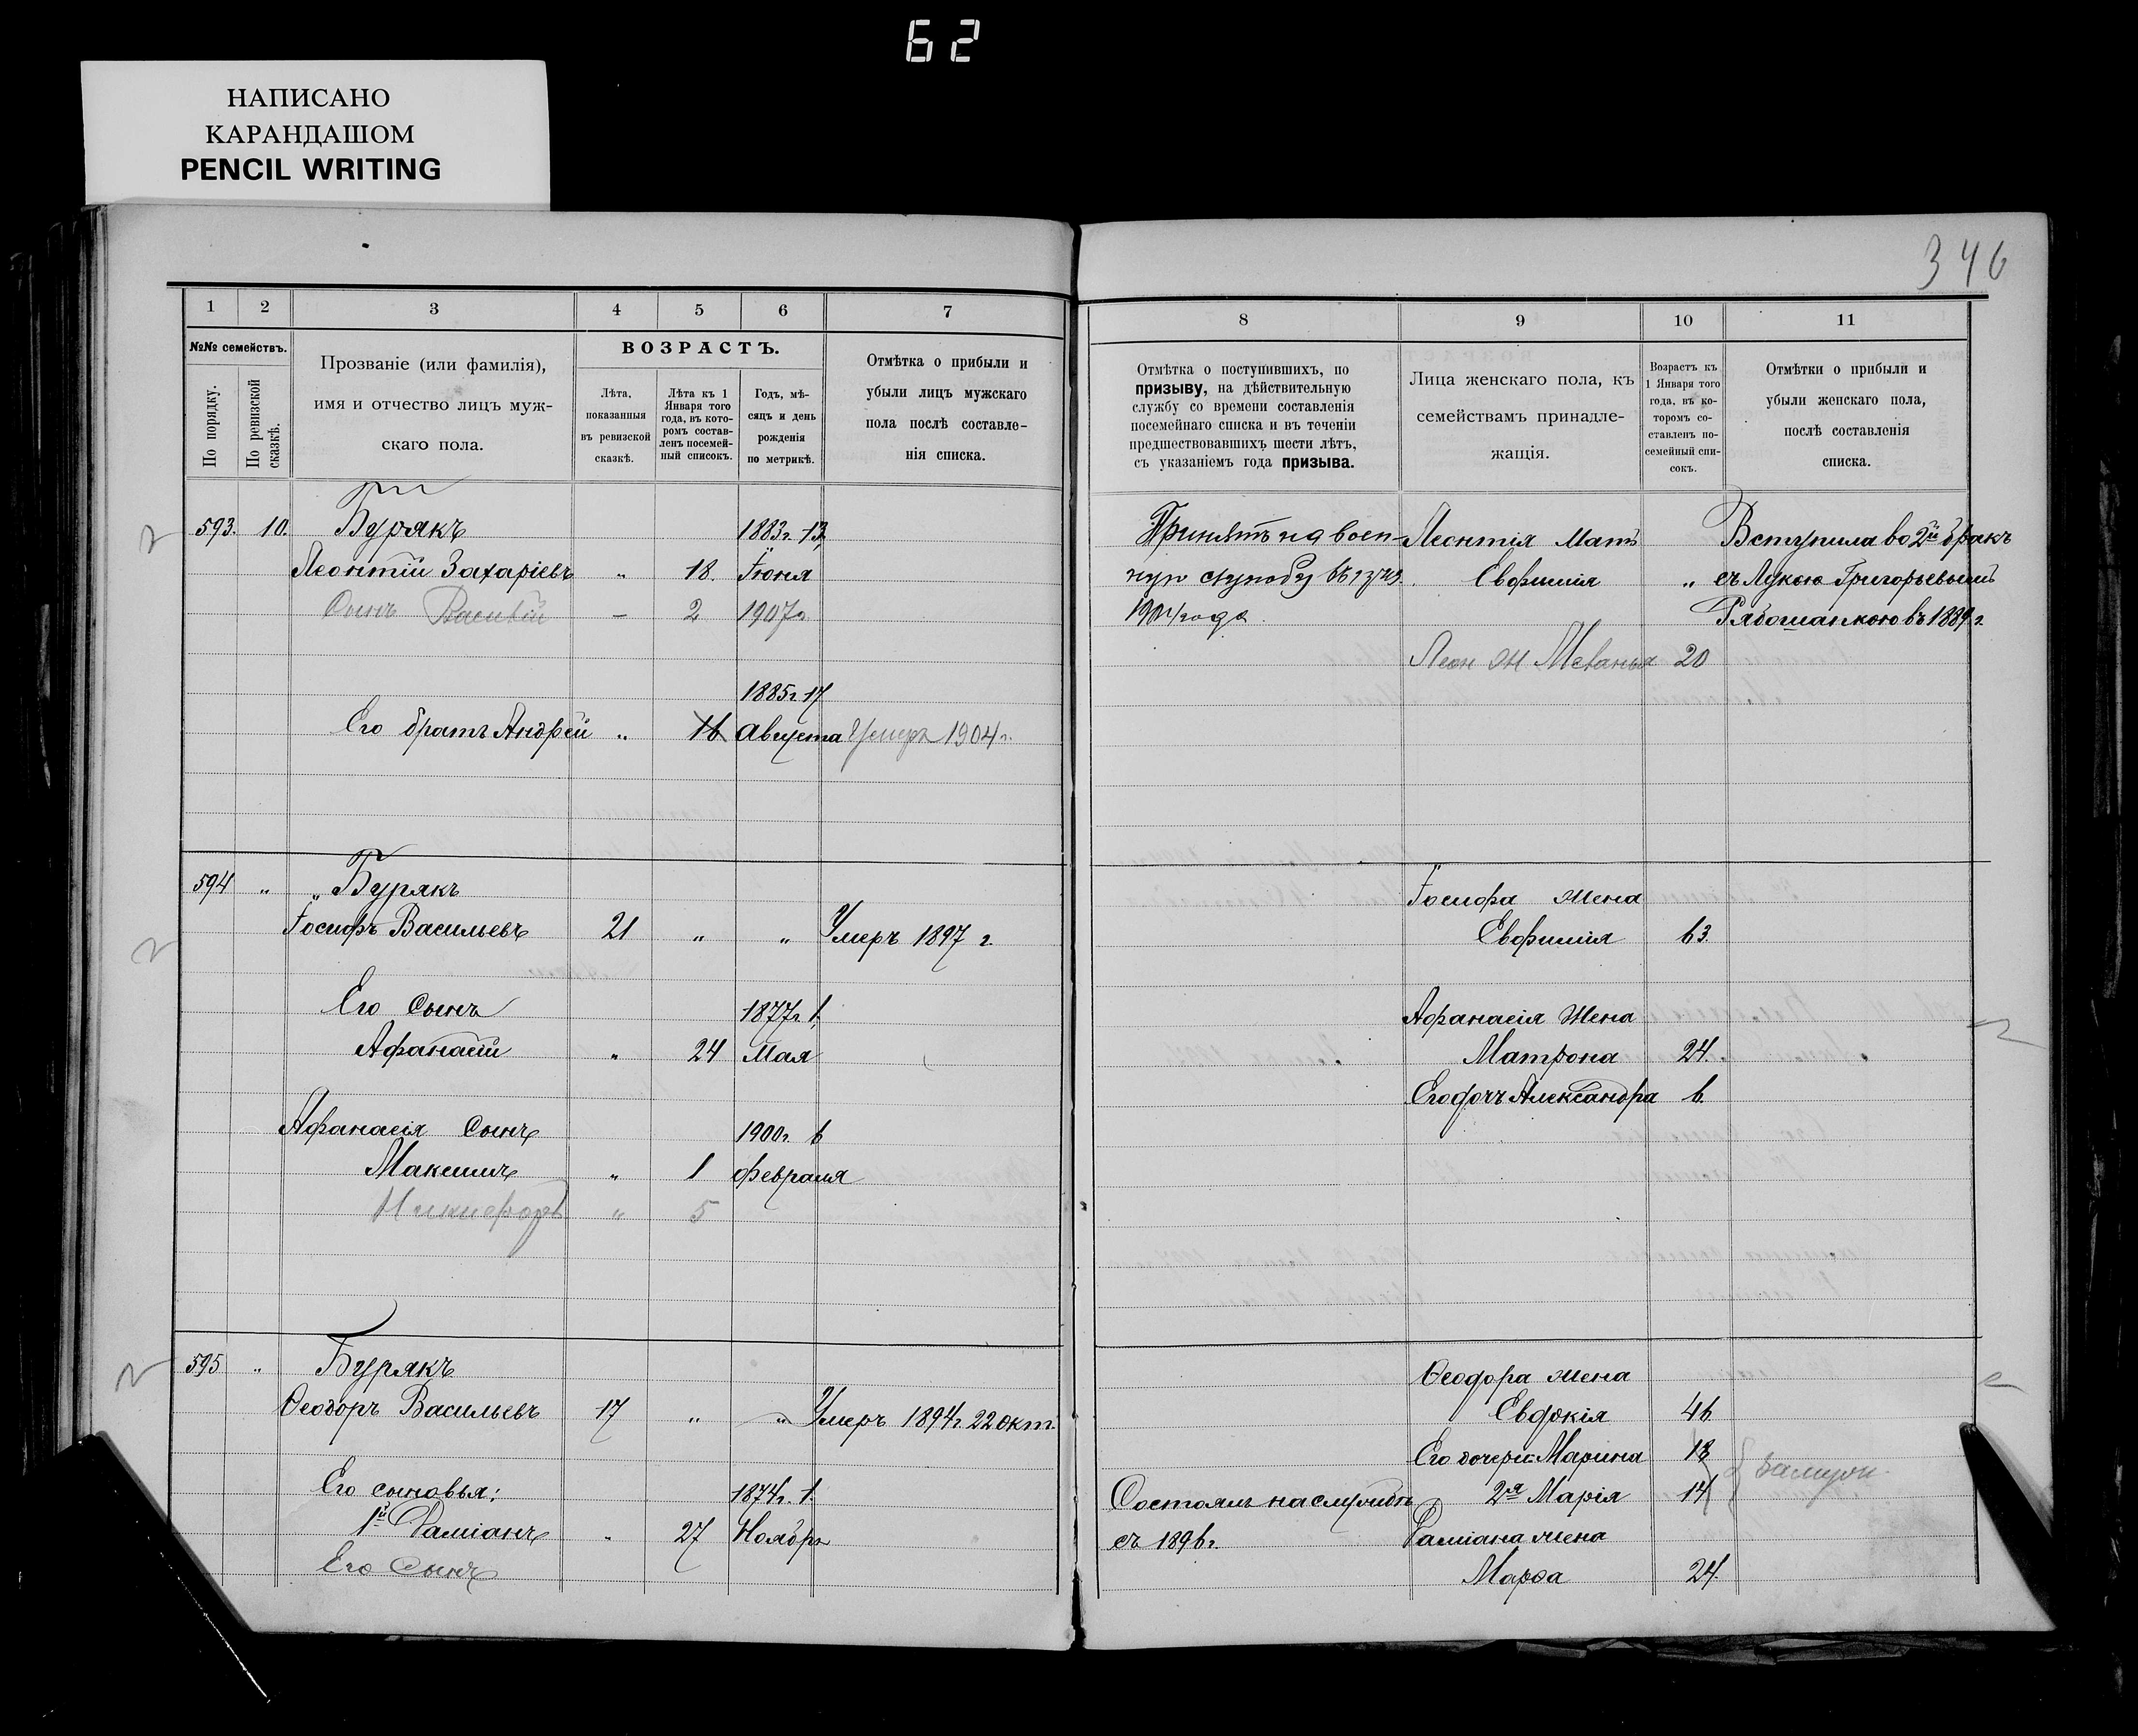 62
НАПИСАНО
КАРАНДАШОМ
PENCIL WRITING
346
1 2 3 4 5 6 7
№№ семействъ.
По порядку.
По ревизской сказкѣ.
Прозваніе (или фамилія),
имя и отчество лицъ муж-
скаго пола.
ВОЗРАСТЪ.
Лѣта,
показанныя
въ ревизской
сказкѣ.
Лѣта къ 1
Января того
года, въ кото-
ромъ состав-
ленъ посемей-
ный списокъ.
Годъ, мѣ-
сяцъ и день
рожденія
по метрикѣ.
Отмѣтка о прибыли и
убыли лицъ мужскаго
пола послѣ составле-
нія списка.
593. 10. Бурякъ 1883г. 13
Леонтій Захаріевъ " 18. Іюня
Сынъ Василій — 2 1907г
1885г. 17
Его братъ Андрей " 16 Августа Умеръ 1904г.
594 " " Бурякъ
Іосифъ Васильевъ 21 " " Умеръ 1897 г.
Его сынъ 1877г. 1.
Афанасій " 24 Мая
Афанасія сынъ 1900г. 6
Максимъ " 1 февраля
Никифоръ " 5
595 " Бурякъ
Ѳеодоръ Васильевъ 17 " " Умеръ 1894г. 22 окт.
Его сыновья: 1874г. 1.
1й Даміанъ " 27 Ноября
Его сынъ
8 9 10 11
Отмѣтка о поступившихъ, по
призыву, на дѣйствительную
службу со времени составленія
посемейнаго списка и въ теченіи
предшествовавшихъ шести лѣтъ,
съ указаніемъ года призыва.
Лица женскаго пола, къ
семействамъ принадле-
жащія.
Возрастъ къ
1 Января того
года, въ ко-
торомъ со-
ставленъ по-
семейный спи-
сокъ.
Отмѣтки о прибыли и
убыли женскаго пола,
послѣ составленія
списка.
Принятъ на воен- Леонтія мать Вступила во 2й бракъ
ную службу въ Евфимія " съ Лукою Григорьевымъ
1904 года Рябошапкою въ 1889 г.
Леон ж Меланья 20
Іосифа жена
Евфимія 63.
Афанасія жена
Матрона 24.
Его дочь Александра 6.
Ѳеодора жена
Евдокія 46
Его дочери: Марина 18
Состоялъ на службѣ 2я Марія 14 замуж.
съ 1896г. Даміана жена
Марѳа 24.